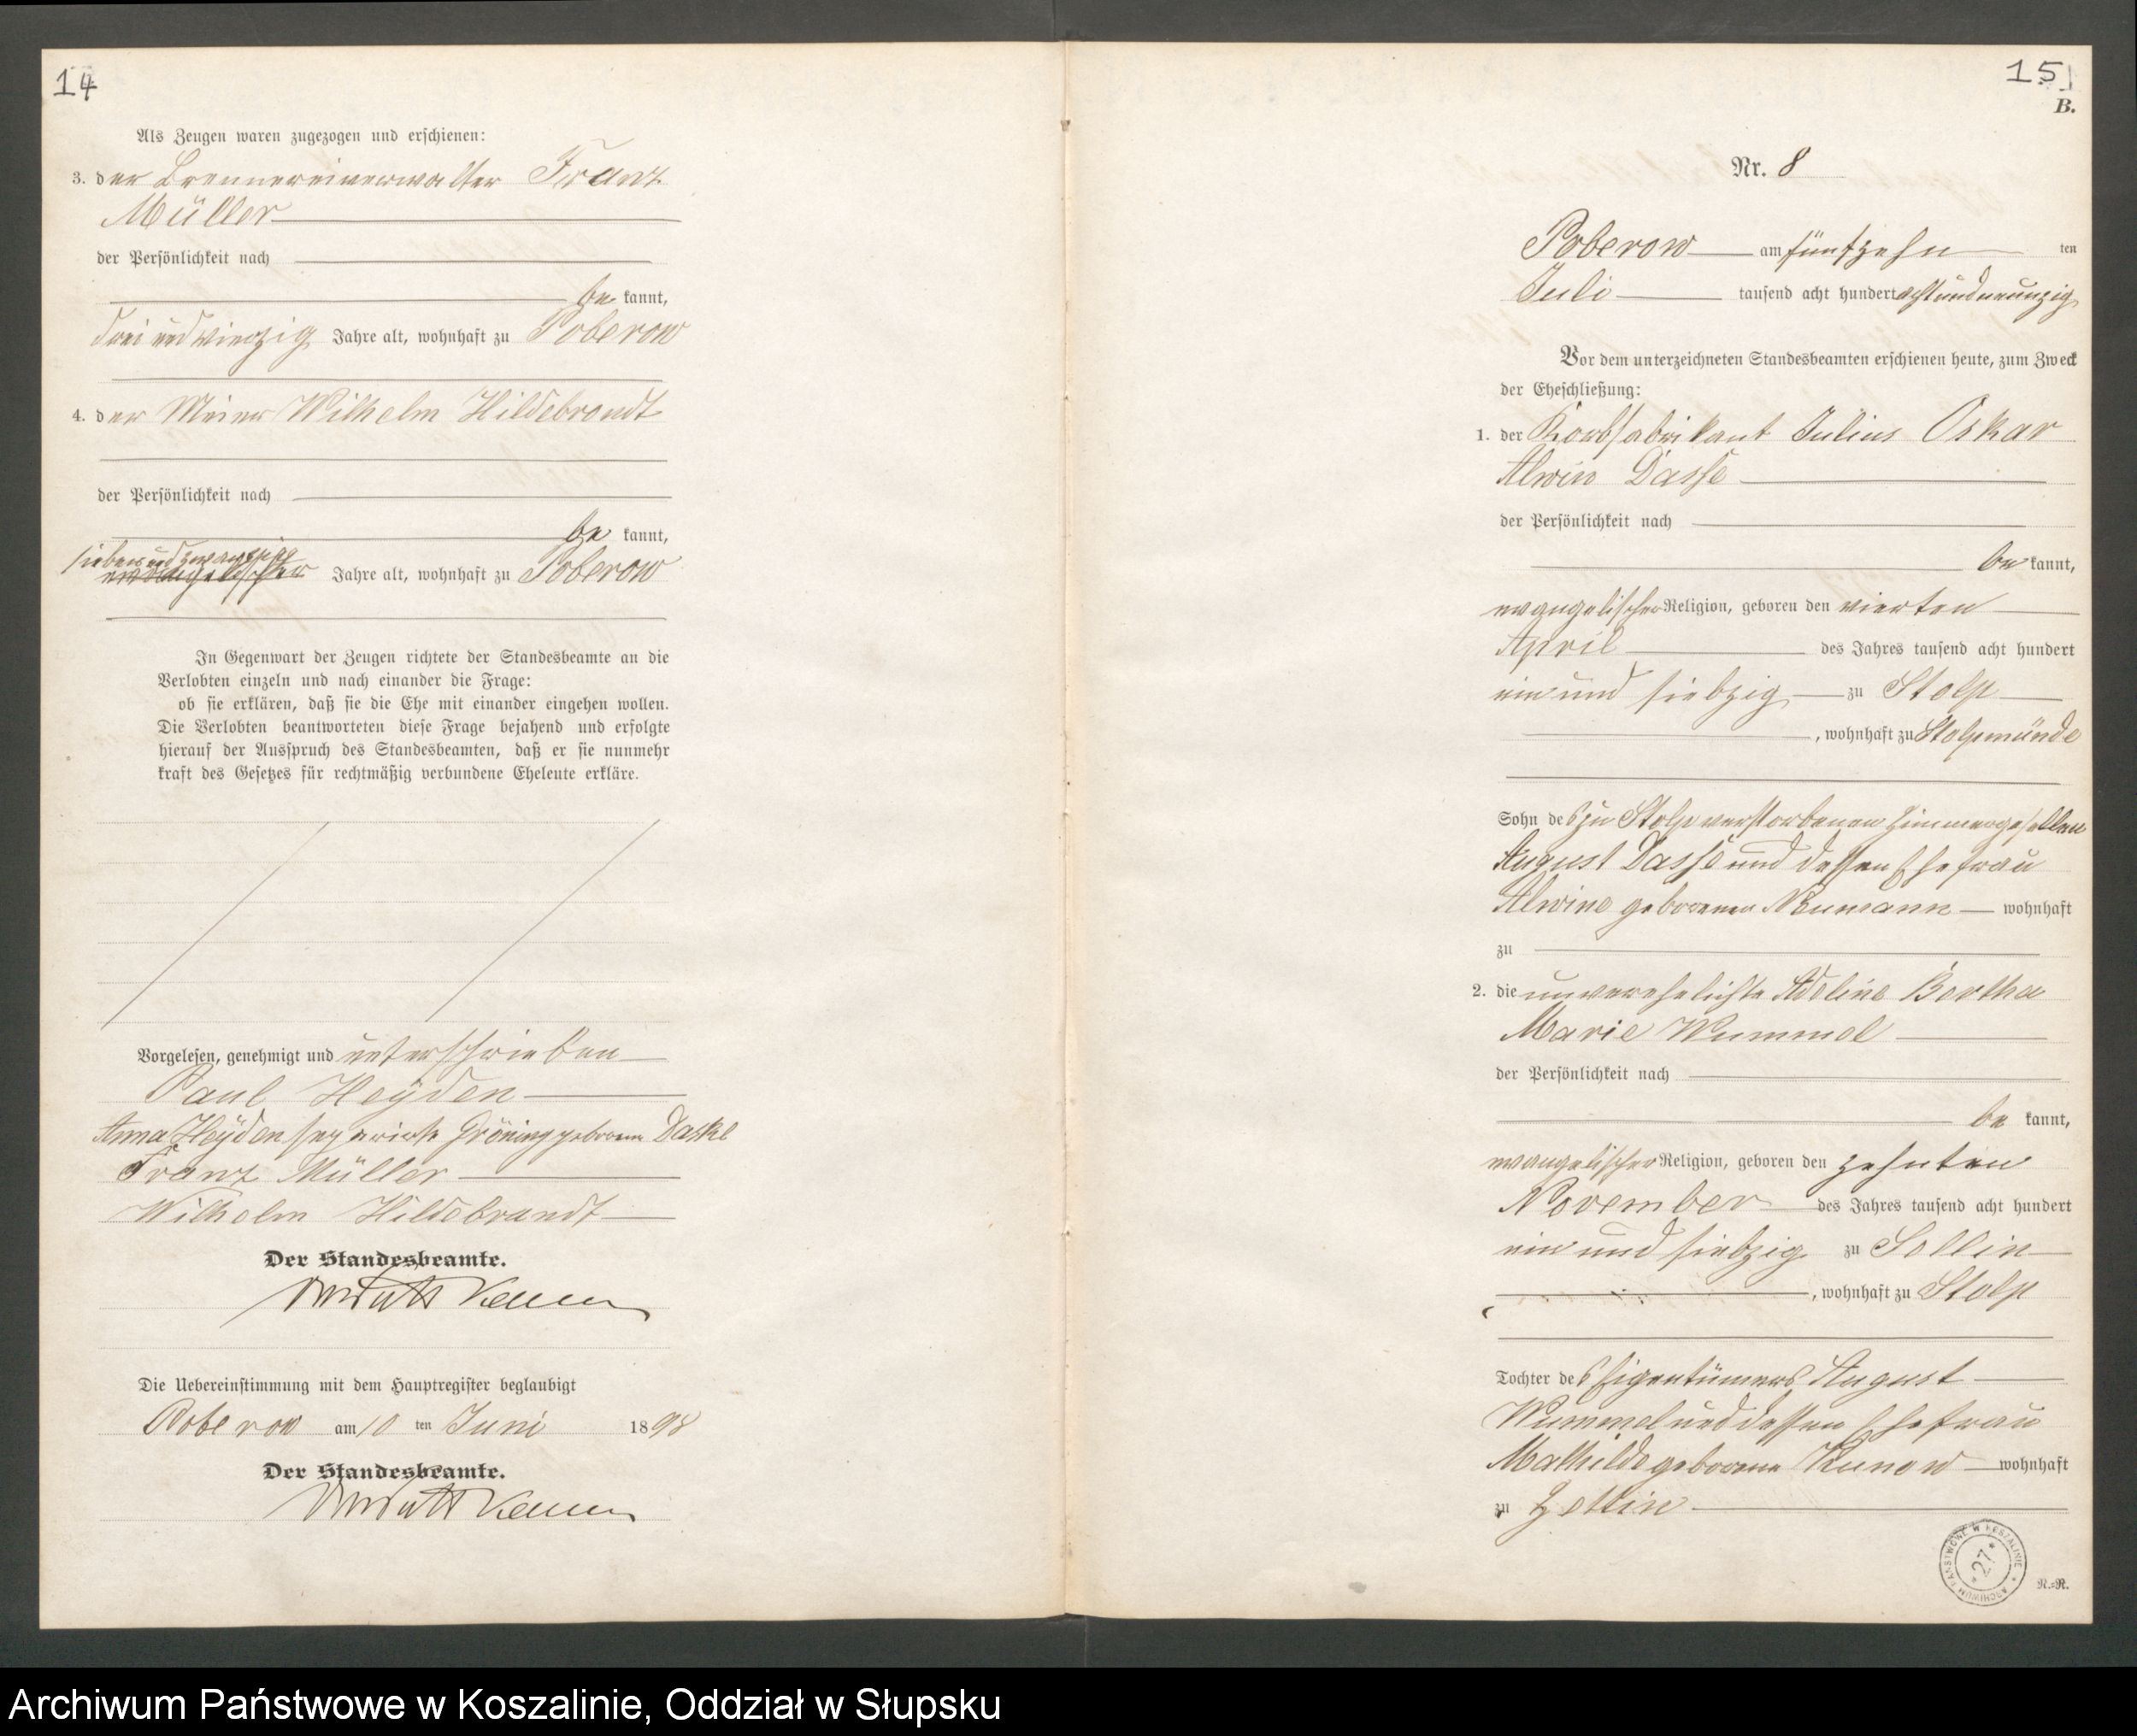 14
Als Zeugen waren zugezogen und erschienen:
3. der Brennereiverwalter Franz
Müller
der Persönlichkeit nach
be kannt,
drei und vierzig Jahre alt, wohnhaft zu Poberow
4. der Meier Wilhelm Hildebrandt
der Persönlichkeit nach
be kannt,
sieben und zwanzig
evangelischer Jahre alt, wohnhaft zu Poberow
In Gegenwart der Zeugen richtete der Standesbeamte an die
Verlobten einzeln und nach einander die Frage:
ob sie erklären, daß sie die Ehe mit einander eingehen wollen.
Die Verlobten beantworteten diese Frage bejahend und erfolgte
hierauf der Ausspruch des Standesbeamten, daß er sie nunmehr
kraft des Gesetzes für rechtmäßig verbundene Eheleute erkläre.
Vorgelesen, genehmigt und unterschrieben
Paul Heyden
Anna Heyden Gröning geborene Daske
Franz Müller
Wilhelm Hildebrandt
Der Standesbeamte.
Die Uebereinstimmung mit dem Hauptregister beglaubigt
Poberow am 10 ten Juni 1898
Der Standesbeamte.
15
B.
Nr. 8
Poberow am fünfzehn ten
Juli tausend acht hundert achtundneunzig
Vor dem unterzeichneten Standesbeamten erschienen heute, zum Zweck
der Eheschließung:
1. der Korbfabrikant Julius Oskar
Alwin Dasse
der Persönlichkeit nach
be kannt,
evangelischer Religion, geboren den vierten
April des Jahres tausend acht hundert
ein und siebzig zu Stolp
, wohnhaft zu Stolpmünde
Sohn des zu Stolp verstorbenen Zimmergesellen
August Dasse und dessen Ehefrau
Alwine geborenen Neumann wohnhaft
zu
2. die unverehelichte Adeline Bertha
Marie Wummel
der Persönlichkeit nach
be kannt,
evangelischer Religion, geboren den zehnten
November des Jahres tausend acht hundert
ein und siebzig zu Sellin
, wohnhaft zu Stolp
Tochter des Eigentümers August
Wummel und dessen Ehefrau
Mathilde geborene Kunow wohnhaft
zu Zettin
ARCHIWUM PAŃSTWOWE W KOSZALINIE
27
R.-R.
Archiwum Państwowe w Koszalinie, Oddział w Słupsku